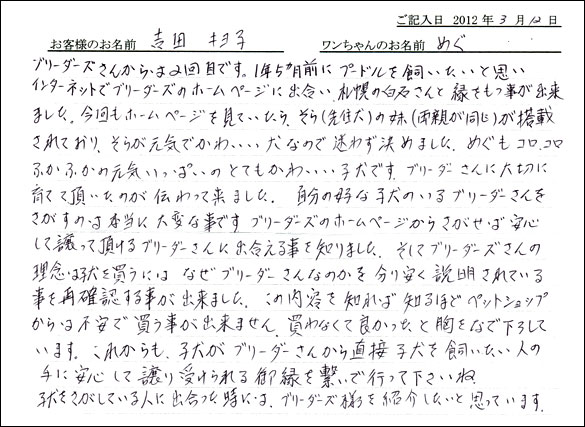 ご記入日 2012 年 3 月 12 日
お客様のお名前 吉田 キヨ子 ワンちゃんのお名前 めぐ
ブリーダーズさんからは2回目です。1年5ヵ月前にプードルを飼いたいと思い
インターネットでブリーダーズのホームページに出合い、札幌の白石さんと縁をもつ事が出来
ました。今回もホームページを見ていたら、そら(先住犬)の妹(両親が同じ)が搭載
されており、そらが元気でかわいい犬なので迷わず決めました。めぐもコロコロ
ふかふかの元気いっぱいのとてもかわいい子犬です。ブリーダーさんに大切に
育てて頂いたのが伝わって来ました。 自分の好な子犬のいるブリーダーさんを
さがすのは本当に大変な事です ブリーダーズのホームページからさがせば安心
して譲って頂けるブリーダーさんに出合える事を知りました。そしてブリーダーズさんの
理念は子犬を買うには なぜブリーダーさんなのかを分り安く説明されている
事を再確認する事が出来ました。この内容を知れば知るほどペットショップ
からは不安で買う事が出来ません。買わなくて良かったと胸をなで下ろして
います。これからも、子犬がブリーダーさんから直接子犬を飼いたい人の
手に安心して譲り受けられる御縁を繋いで行って下さいね
子犬をさがしている人に出合った時には、ブリーダーズ様を紹介したいと思っています。